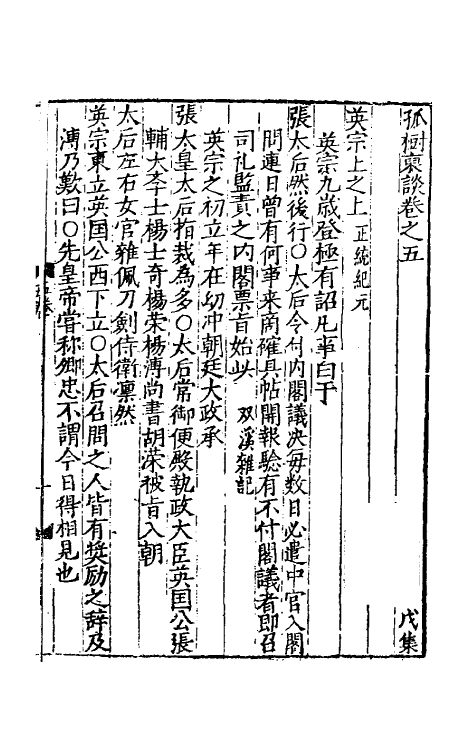 孤樹裒談卷之五
戊集
英宗上之上 正統紀元
英宗九歲登極有詔凡事白于
張太后然後行〇太后令付内閣議决每数日必遣中官入閣
問連日曾有何事来商確具帖開報驗有不付閣議者即召
司礼監責之内閣票旨始此 双溪雜記
英宗之初立年在幼冲朝廷大政承
張太皇太后指裁為多〇太后常御便殿執政大臣英国公張
輔大李士楊士奇楊荣楊溥尚書胡荣被旨入朝
太后左右女官雜佩刀劍侍衛凛然
英宗東立英国公西下立〇太后召問之人皆有奨励之辞及
溥乃歎曰〇先皇帝甞称卿忠不謂今日得相見也